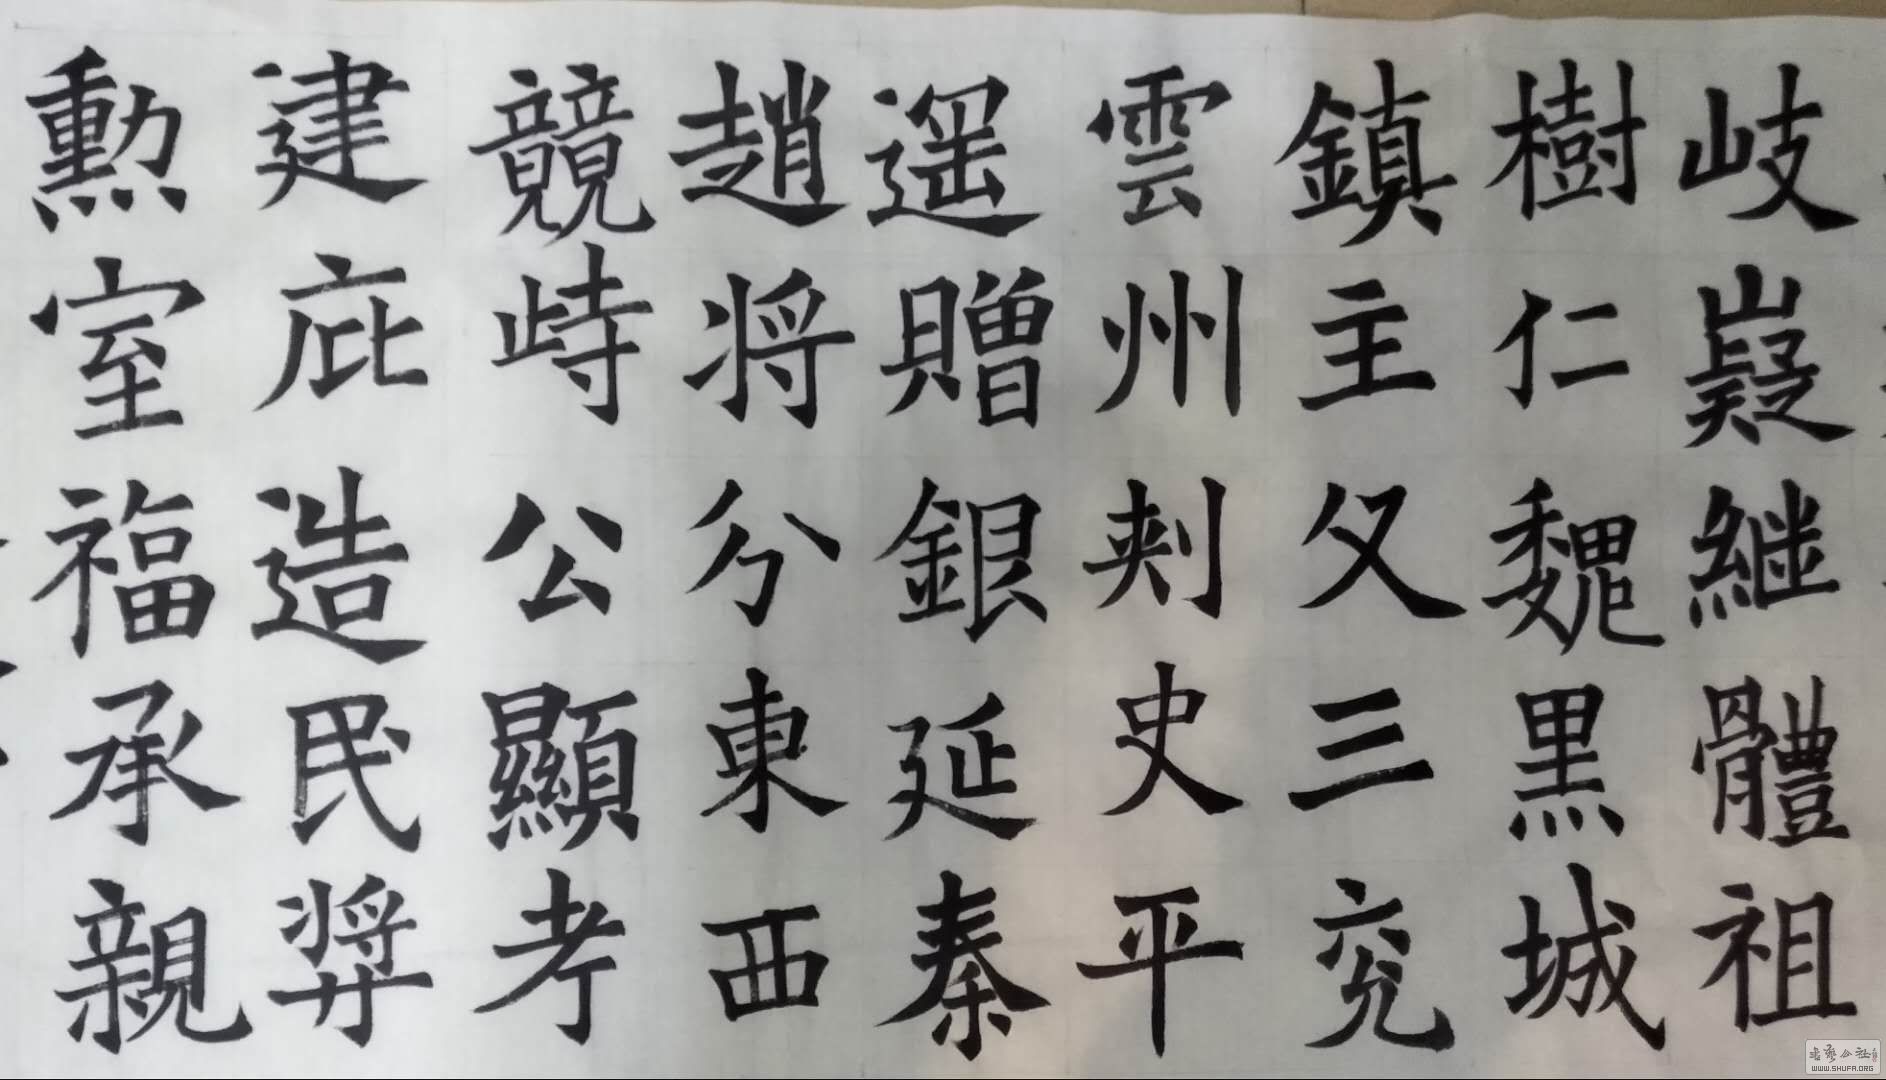 岐嶷継體祖
樹仁魏黒城
鎮主父三兖
雲州刺史平
遥贈銀延秦
趙将分東西
競峙公顯考
建庇造民奨
勲室福承親
WWW.SHUFA.ORG